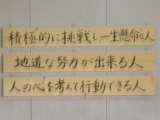 積極的に挑戦し一生懸命な人
地道な努力が出来る人
人の心を考えて行動できる人